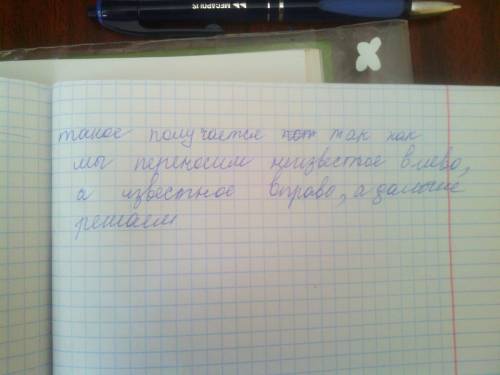 MEGAPOLIS
такое получается так как
мы переносим неизвестное влево,
а известное вправо, а дальше
решаем